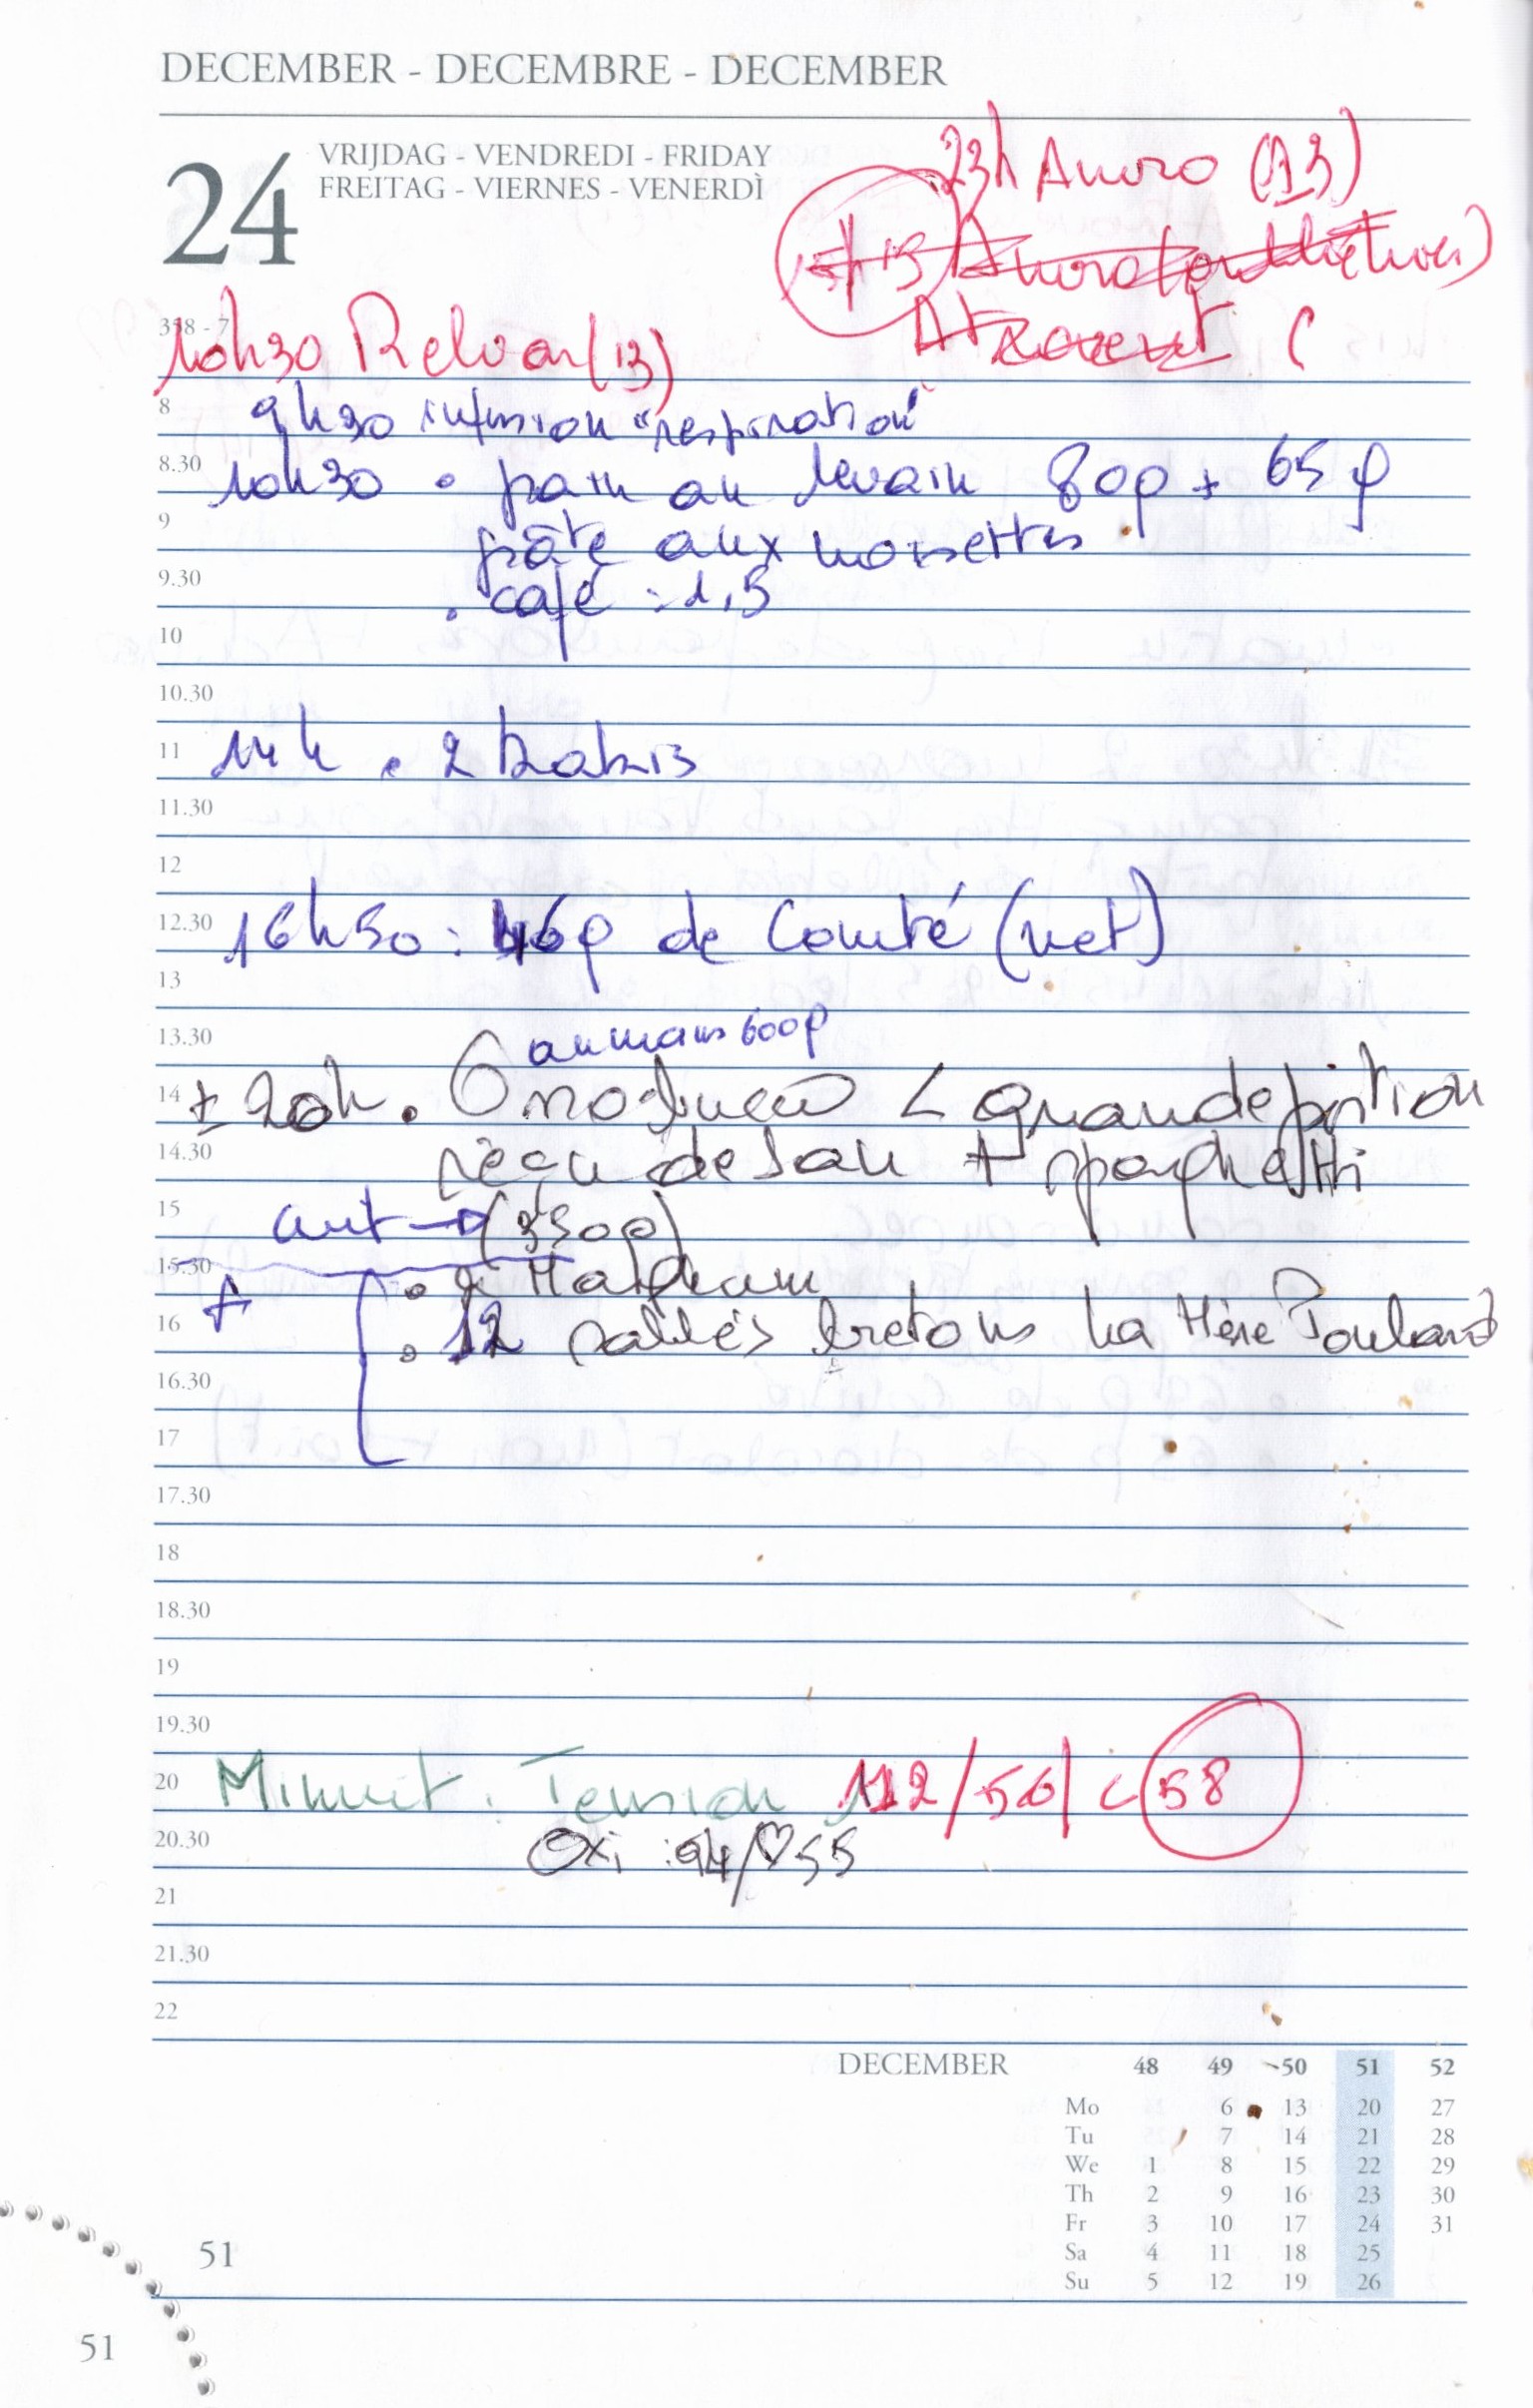 DECEMBER - DECEMBRE - DECEMBER
24
VRIJDAG - VENDREDI - FRIDAY
FREITAG - VIERNES - VENERDÌ
23h Anoro (13)
Atrovent (
358 - 7
10h30 Relvar (13)
8
9h30 infusion "respiration"
8.30
10h30 • pain au levain 80g + 65g
9
pâte aux noisettes
9.30
• café : 1,5
10
10.30
11
14h • 2 kakis
11.30
12
12.30
16h50 : 46g de Comté (net)
13
13.30
au moins 600g
14
± 20h • < grande portion
14.30
reçu de Jan + spaghetti
15
cuit → (350g)
15.30
• 2 Magnum
16
+ • 12 sablés bretons La Mère Poulard
16.30
17
17.30
18
18.30
19
19.30
20
Minuit : Tension 112/56/ c 58
20.30
Oxi : 94/♡55
21
21.30
22
DECEMBER 48 49 50 51 52
Mo 6 13 20 27
Tu 7 14 21 28
We 1 8 15 22 29
Th 2 9 16 23 30
Fr 3 10 17 24 31
Sa 4 11 18 25
Su 5 12 19 26
51
51